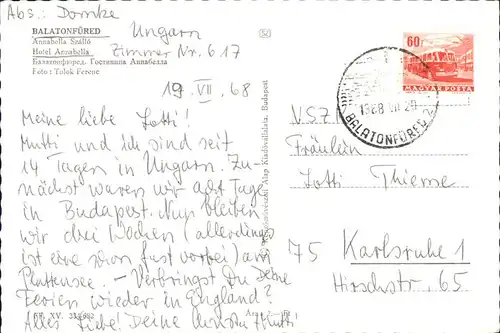 Abs.: Domke
Ungarn
BALATONFÜRED
Annabella Szálló
Hotel Annabella
Балатонфюред. Гостиница Аннабелла
Foto: Tulok Ferenc
Zimmer Nr. 617
19. VII. 68
Meine liebe Lotti!
Mutti und ich sind seit
14 Tagen in Ungarn. Zu-
nächst waren wir acht Tage
in Budapest. Nun bleiben
wir drei Wochen (allerdings
ist eine schon fast vorbei) am
Plattensee. – Verbringst Du Deine
Ferien wieder in England?
Alles Liebe! Deine
Mutti
Képzőművészeti Alap Kiadóvállalata, Budapest
60f
MAGYAR POSTA
1968 VII 20
BALATONFÜRED 2
Fräulein
Lotti Thieme
75 Karlsruhe 1
Hirschstr. 65